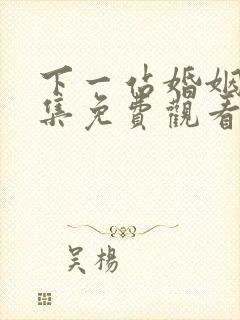 下一站婚姻
集免費觀看
吴楊